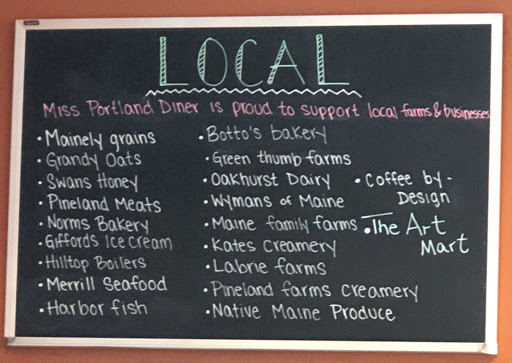 LOCAL
Miss Portland Diner is proud to support local farms & businesses
• Mainely grains
• Grandy Oats
• Swans Honey
• Pineland Meats
• Norms Bakery
• Giffords Ice Cream
• Hilltop Boilers
• Merrill Seafood
• Harbor fish
• Botto's bakery
• Green thumb farms
• Oakhurst Dairy
• Wymans of Maine
• Maine family farms
• Kates Creamery
• Labrie farms
• Pineland farms creamery
• Native Maine Produce
• Coffee by-
Design
• The Art
Mart